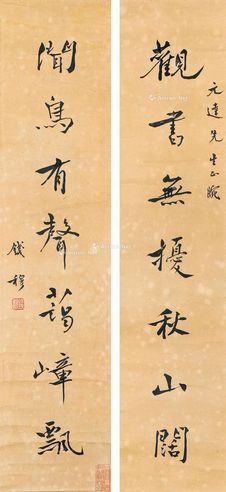 元達先生正
觀書無擾秋山闊
聞鳥有聲藹嶂飄
錢穆